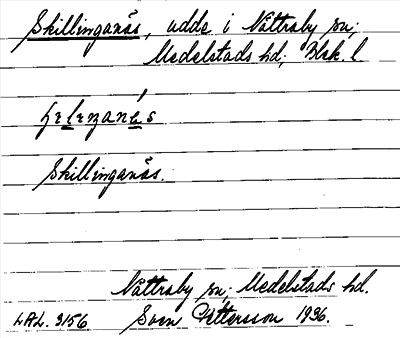 Skillinganäs, udde i Nättraby sn;
Medelstads hd; Blek. l
Skillinganäs.
Nättraby sn; Medelstads hd.
LAL. 3156 Sven Pettersson 1936.